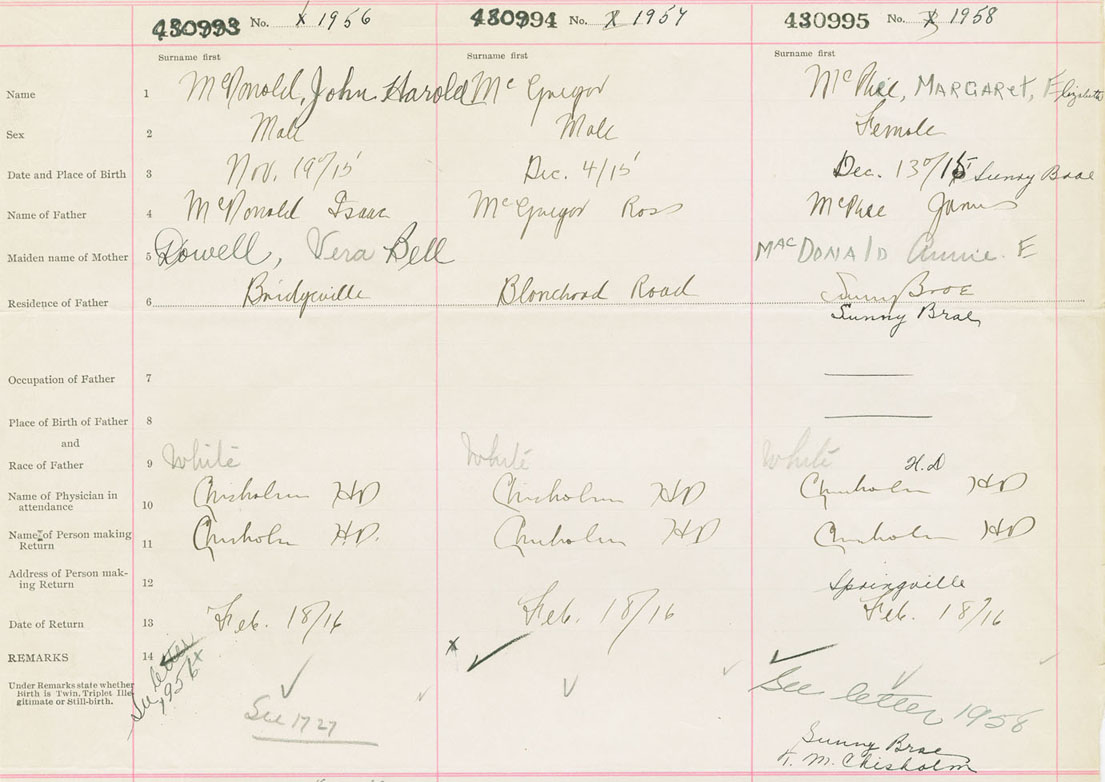 430993 No. X 1956 430994 No. X 1957 430995 No. X 1958
Surname first Surname first Surname first
Name 1 McDonald, John Harold McGregor McPhee, MARGARET, Elizabeth
Sex 2 Male Male Female
Date and Place of Birth 3 Nov. 19/15 Dec. 4/15 Dec. 13/15 Sunny Brae
Name of Father 4 McDonald Isaac McGregor Ross McPhee James
Maiden name of Mother 5 Dowell, Vera Bell MACDONALD Annie. E
Residence of Father 6 Bridgeville Blanchard Road Sunny Brae
Sunny Brae
Occupation of Father 7
Place of Birth of Father 8
and
Race of Father 9 White White White
H.D
Name of Physician in
attendance 10 Chisholm HD Chisholm HD Chisholm HD
Name of Person making
Return 11 Chisholm H.D. Chisholm HD Chisholm HD
Address of Person mak-
ing Return 12 Springville
Date of Return 13 Feb. 18/16 Feb. 18/16 Feb. 18/16
REMARKS 14
Under Remarks state whether
Birth is Twin, Triplet Ille
gitimate or Still-birth.
See letter
1956
See 1727
See letter 1958
Sunny Brae
T. M. Chisholm